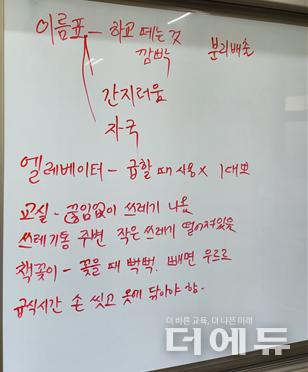 이름표 - 하고 떼는 것
깜박
분리배출
간지러움
자국
엘레베이터 - 급할 때 사용 x 1대뿐
교실 - 끊임없이 쓰레기 나옴
쓰레기통 주변 작은 쓰레기 떨어져있음
책꽂이 - 꽂을 때 빡빡. 빼면 우르르
급식시간 손 씻고 옷에 닦아야 함.
더 바른 교육, 더 나은 미래
더에듀